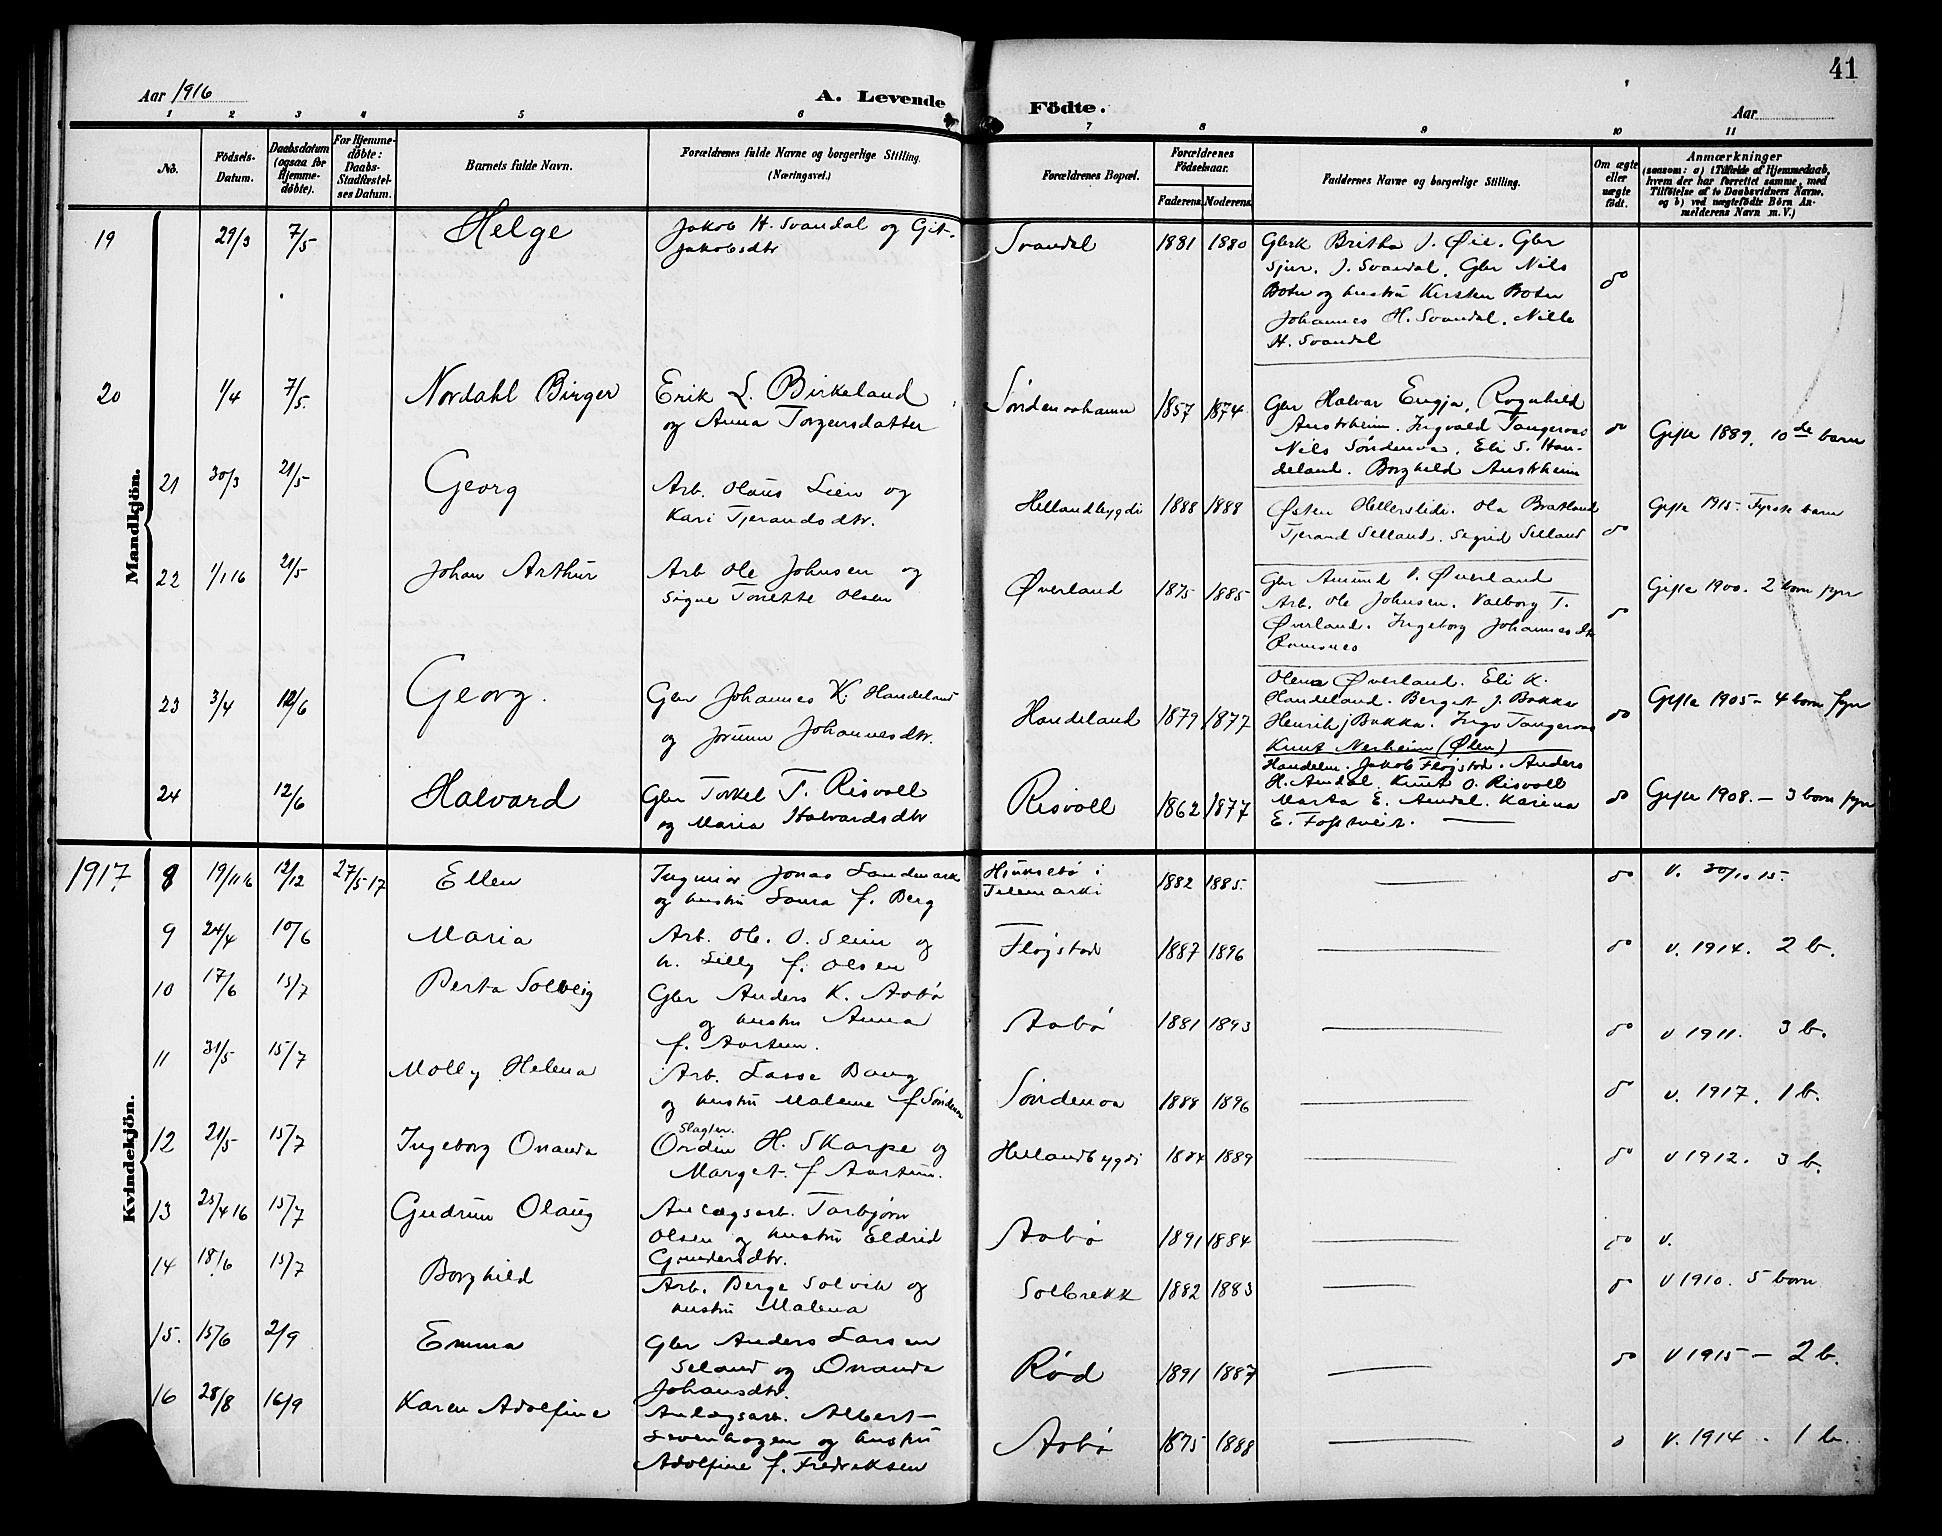 41
Aar 1916
A. Levende Födte.
Aar
1 2 3 4 5 6 7 8 9 10 11
No.
Födsels-Datum.
Daabsdatum (ogsaa for Hjemme-döbte).
For Hjemme-döbte: Daabs-Stadfæstel-ses Datum.
Barnets fulde Navn.
Forældrenes fulde Navne og borgerlige Stilling. (Næringsvei.)
Forældrenes Bopæl.
Forældrenes Födselsaar.
Faderens. Moderens.
Faddernes Navne og borgerlige Stilling.
Om ægte eller uægte födt.
Anmærkninger
(saasom: a) i Tilfælde af Hjemmedaab,
hvem der har forrettet samme, med
Tilföielse af to Daabsvidners Navne,
og b) ved uægtefödte Börn An-
melderens Navn m. V.)
Mandkjön.
19 29/3 7/5 Helge
Jakob H. Svandal og Git.
Jakobsdtr
Svandal 1881 1880
Gbrk Britha J. Øie. Gbr
Sjur. J. Svandal. Gbr Nils
Boten og hustru Kirsten Boten
Johannes H. Svandal. Nille
H. Svandal
20 1/4 7/5. Nordahl Birger
Erik L. Birkeland
og Anna Torgersdatter
Søndenaahamn 1857 1874
Gbr Halvar Engja, Ragnhild
Austrheim. Ingvald Tangeraas
Nils Søndenaa. Eli S. Han-
deland. Borghild Austrheim
Gifte 1889. 10de barn
21 30/3 21/5 Georg
Arb. Olaus Lien og
Kari Tjerandsdtr.
Hellandbygdi 1888 1888
Østen Hellerslidi. Ola Bratland
Tjerand Selland. Sigrid Selland
Gifte 1915 - Fyrste barn
22 1/1 16 21/5 Johan Arthur
Arb Ole Johnsen og
Signe Tonette Olsen
Øverland 1875 1885
Gbr Amund V. Øverland
Arb. Ole Johnsen. Valborg T.
Øverland. Ingeborg Johannesdtr
Ramsnes
Gifte 1900. 2 born fyr
23 3/4 12/6 Georg.
Gbr Johannes K. Handeland
og Jorunn Johannesdtr.
Handeland 1879 1877
Olena Øverland. Eli K.
Handeland. Berget J. Bakka
Henrik J Bakka. Inga Tangeraas
Knut Nerheim (Ølen)
Gifte 1905 - 4 born fyr
24 12/6 Halvard
Gbr Torkel T. Risvoll
og Maria Halvardsdtr
Risvoll 1862 1877
Handelm. Jakob Fløjstad. Anders
H. Amdal. Knut O. Risvoll
Marta E. Amdal. Karina
E. Fosstveit.
Gifte 1908. - 3 born fyr
Kvindekjön.
1917
8 19/11 16 12/12 27/5 17 Ellen
Ingmar Jonas Landmark
og hustru Laura f. Berg
Telemarki 1882 1885.
V. 30/10 15.
9 24/4 10/6 Maria
Arb. Ole. O. Seim og
h. Lilly f. Olsen
Fløjstad 1887 1896
v. 1914. 2 b.
10 17/6 15/7 Berta Solveig
Gbr Anders K. Aabø
og hustru Anna
f. Aartun.
Aabø 1881 1893
v 1911. 3 b.
11 31/5 15/7 Molly Helena
Arb. Lasse Baug
og hustru Malene f Søndenaa
Søndenaa 1888 1896
v. 1917. 1 b.
12 21/5 15/7 Ingeborg Onanda
Slagter.
Ordin H. Skarpe og
Marget. f Aartun.
Hellandbygdi 1884 1889
v 1912. 3 b.
13 25/4 16 15/7 Gudrun Olaug
Anlægsarb. Torbjørn
Olsen og hustru Eldrid
Gundersdtr.
Aabø 1891 1884
v.
14 18/6 15/7 Borghild
Arb. Berge Solvik og
hustru Malena
Solbrekk 1882 1883
V 1910. 5 born
15. 15/6 2/9 Emma
Gbr Anders Larsen
Seland og Onanda
Johansdtr.
Rød 1891 1887
V 1915 - 2 b.
16 28/8 16/9 Karen Adolfine
Anlægsarb. Albert
Levenhagen og hustru
Adolfine f. Fredriksen
Aabø 1875 1888
v. 1914 - 1 b.